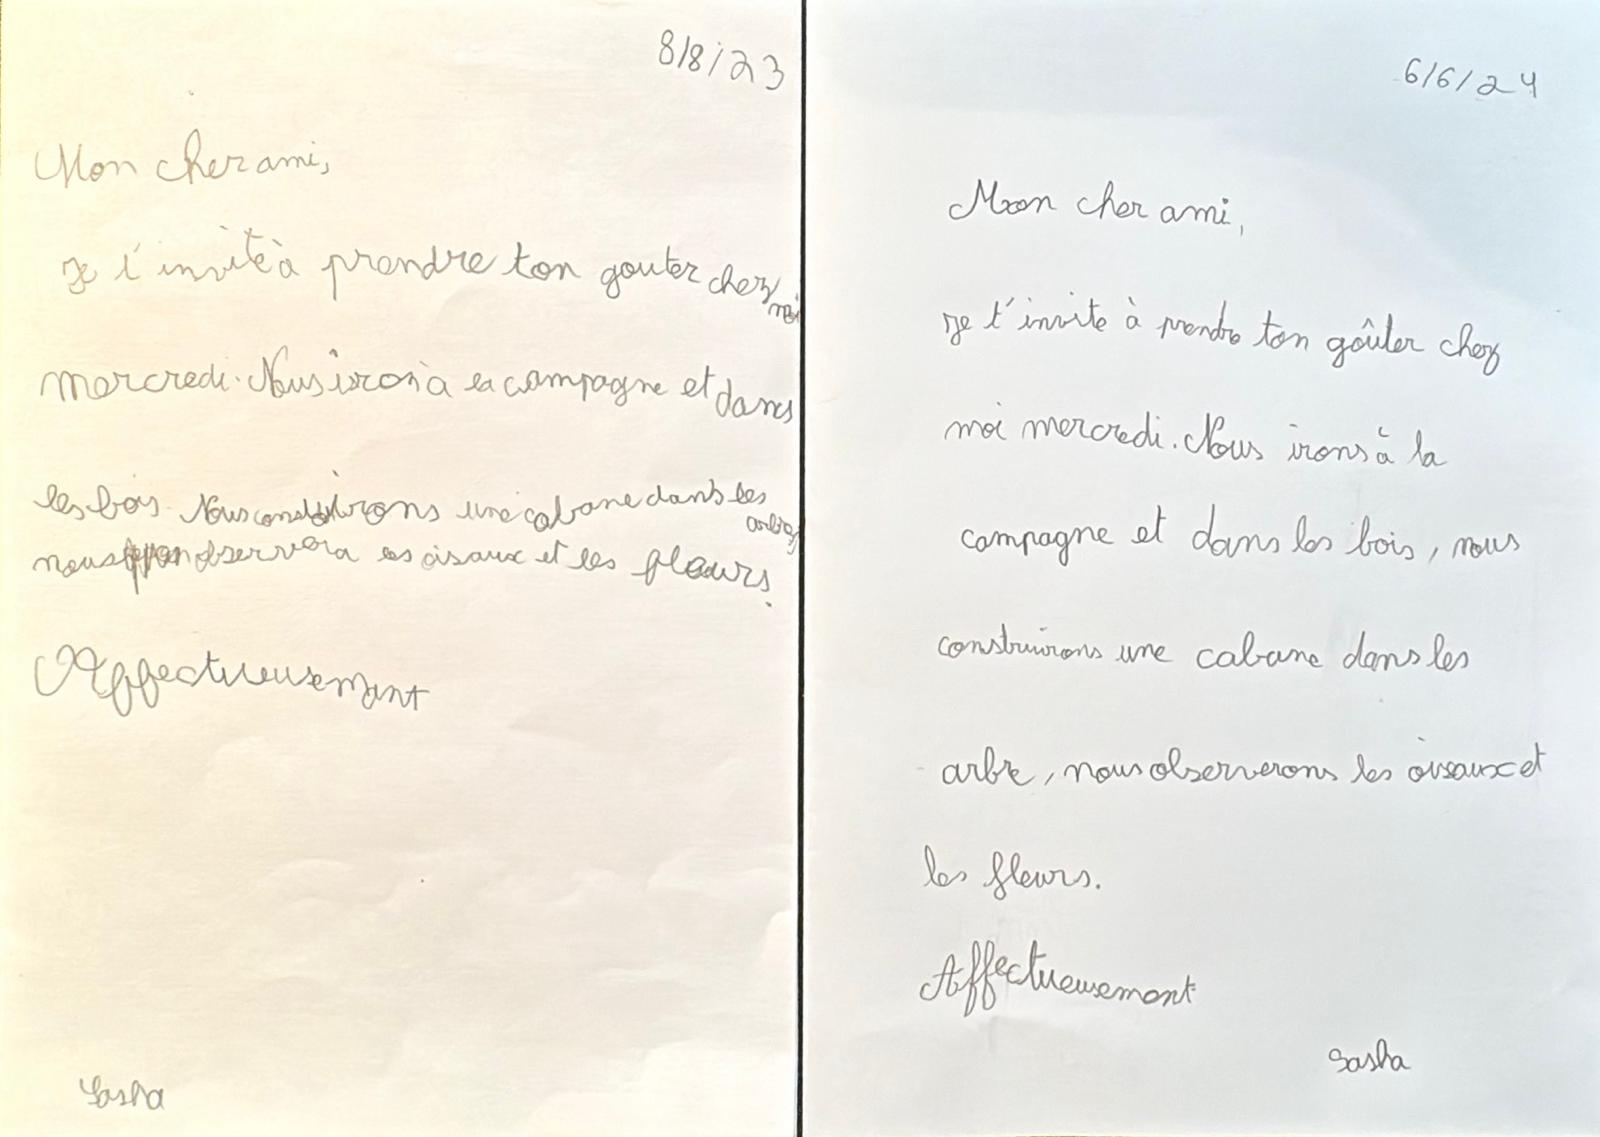 8/8/23
Mon cher ami,
Je t'invite à prendre ton gouter chez
moi
mercredi. Nous iron à la campagne et dans
les bois. Nous construirons une cabane dans les
arbres
nous observera les oisaux et les fleurs.
Affectueusement
Sasha
6/6/24
Mon cher ami,
Je t'invite à prendre ton goûter chez
moi mercredi. Nous irons à la
campagne et dans les bois, nous
construirons une cabane dans les
arbre, nous observerons les oiseaux et
les fleurs.
Affectueusement
Sasha